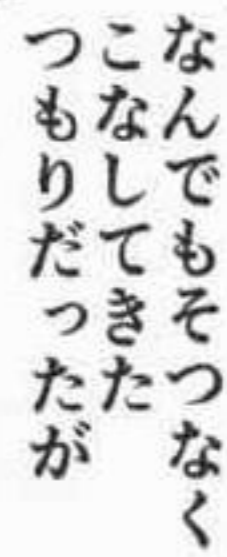 なんでもそつなく
こなしてきた
つもりだったが